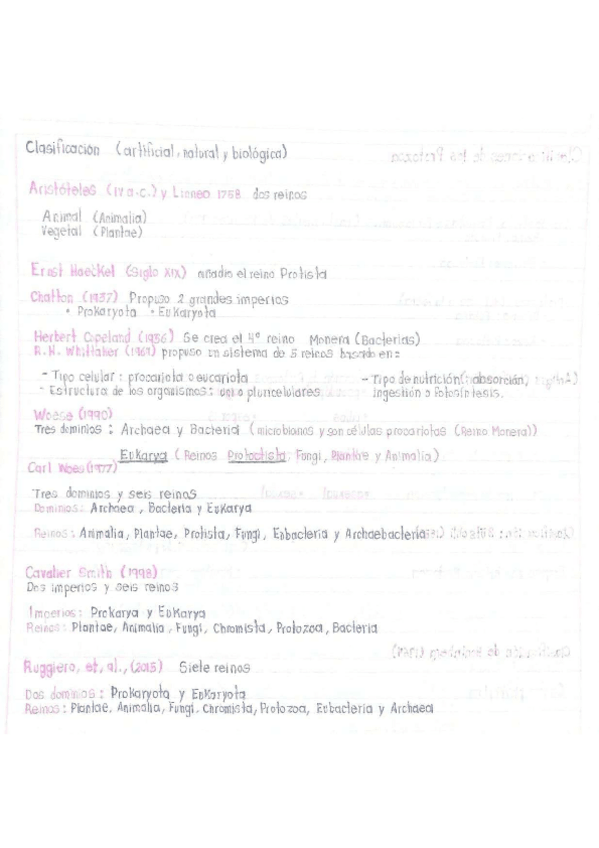 Clasificación (artificial, natural y biológica)
Aristóteles (IV a.c.) y Linneo 1758 dos reinos
Animal (Animalia)
Vegetal (Plantae)
Ernst Haeckel (Siglo XIX) añadio el reino Protista
Chatton (1937) Propuso 2 grandes imperios
• Prokaryota • Eukaryota
Herbert Copeland (1956) Se crea el 4º reino Monera (Bacterias)
R.H. Whittaker (1969) propuso un sistema de 5 reinos basado en:
- Tipo celular: procariota o eucariota - Tipo de nutrición: absorción,
- Estructura de los organismos: uni o pluricelulares Ingestión o Fotosíntesis.
Woese (1990)
Tres dominios: Archaea y Bacteria (microbianos y son células procariotas (Reino Monera))
Eukarya (Reinos Protoctista, Fungi, Plantae y Animalia)
Carl Woes (1977)
Tres dominios y seis reinos
Dominios: Archaea, Bacteria y Eukarya
Reinos: Animalia, Plantae, Protista, Fungi, Eubacteria y Archaebacteria
Cavalier Smith (1998)
Dos imperios y seis reinos
Imperios: Prokarya y Eukarya
Reinos: Plantae, Animalia, Fungi, Chromista, Protozoa, Bacteria
Ruggiero, et, al., (2015) Siete reinos
Dos dominios: Prokaryota y Eukaryota
Reinos: Plantae, Animalia, Fungi, Chromista, Protozoa, Eubacteria y Archaea